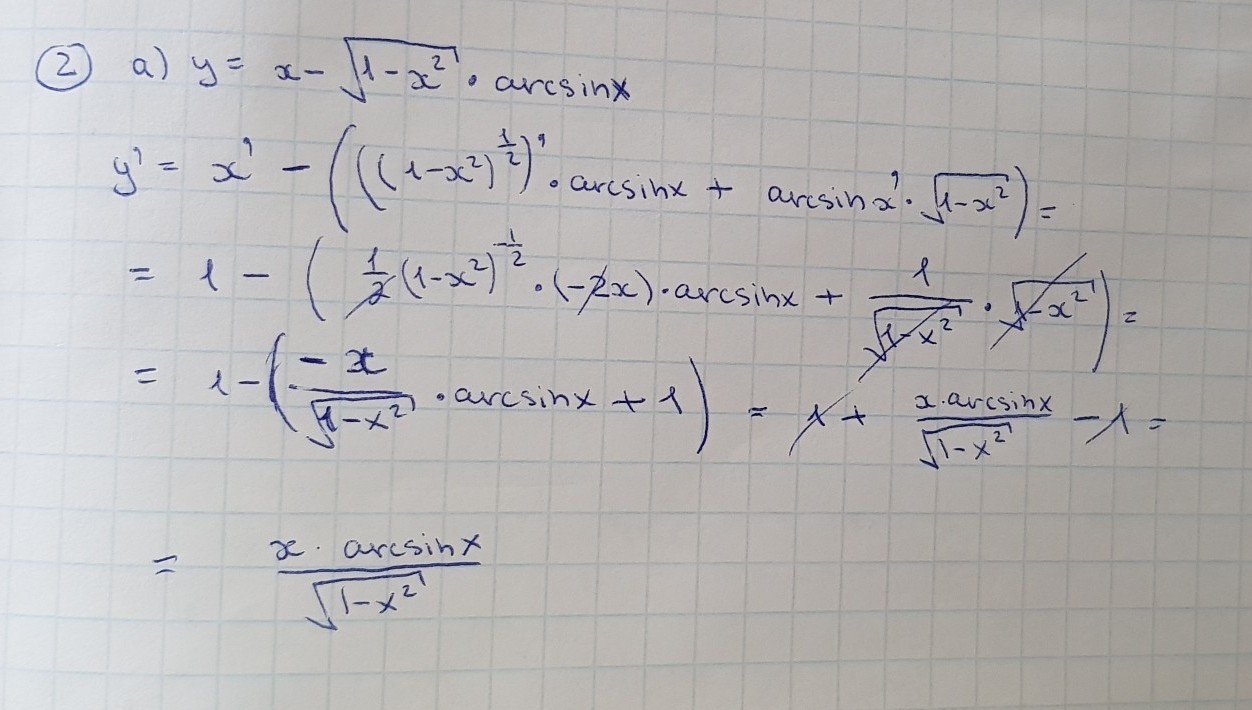 ② a) y = x - √(1-x²) · arcsinx
y' = x' - (((1-x²)^(1/2))' · arcsinx + arcsinx' · √(1-x²)) =
= 1 - (1/2 (1-x²)^(-1/2) · (-2x) · arcsinx + 1/√(1-x²) · √(1-x²)) =
= 1 - (-x/√(1-x²) · arcsinx + 1) = 1 + x·arcsinx/√(1-x²) - 1 =
= x · arcsinx/√(1-x²)